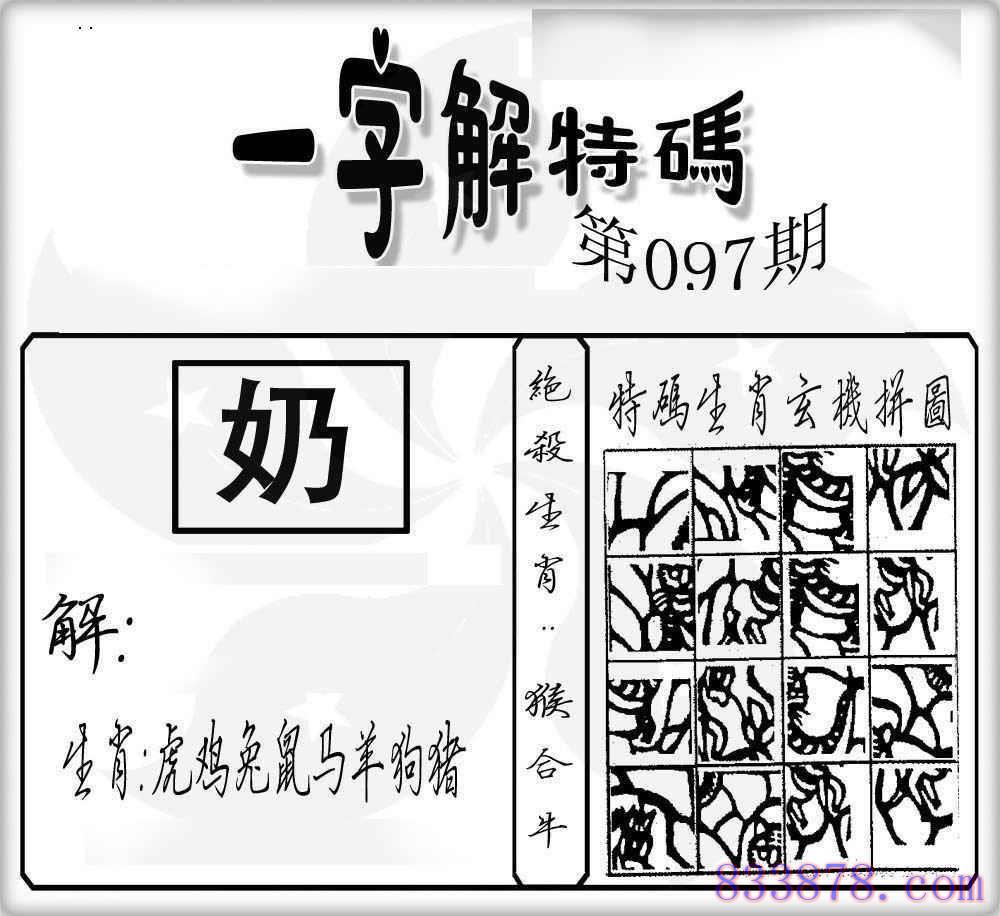 一字解特碼
第097期
奶
解:
生肖:虎鸡兔鼠马羊狗猪
絶殺生肖:猴合牛
特碼生肖玄機拼圖
833878.com